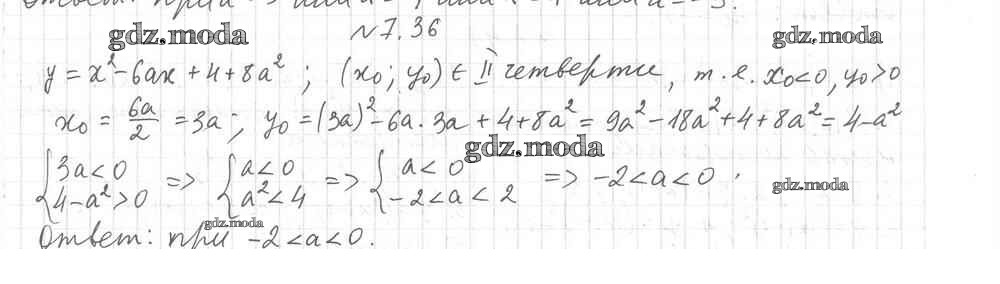 Ответ: при
gdz.moda № 7.36 gdz.moda
y = x² - 6ax + 4 + 8a² ; (x₀; y₀) ∈ II четверти, т.е. x₀ < 0, y₀ > 0
x₀ = 6a/2 = 3a; y₀ = (3a)² - 6a · 3a + 4 + 8a² = 9a² - 18a² + 4 + 8a² = 4 - a²
gdz.moda
{ 3a < 0 => { a < 0 => { a < 0 => -2 < a < 0.
{ 4 - a² > 0 { a² < 4 { -2 < a < 2
gdz.moda
gdz.moda
Ответ: при -2 < a < 0.